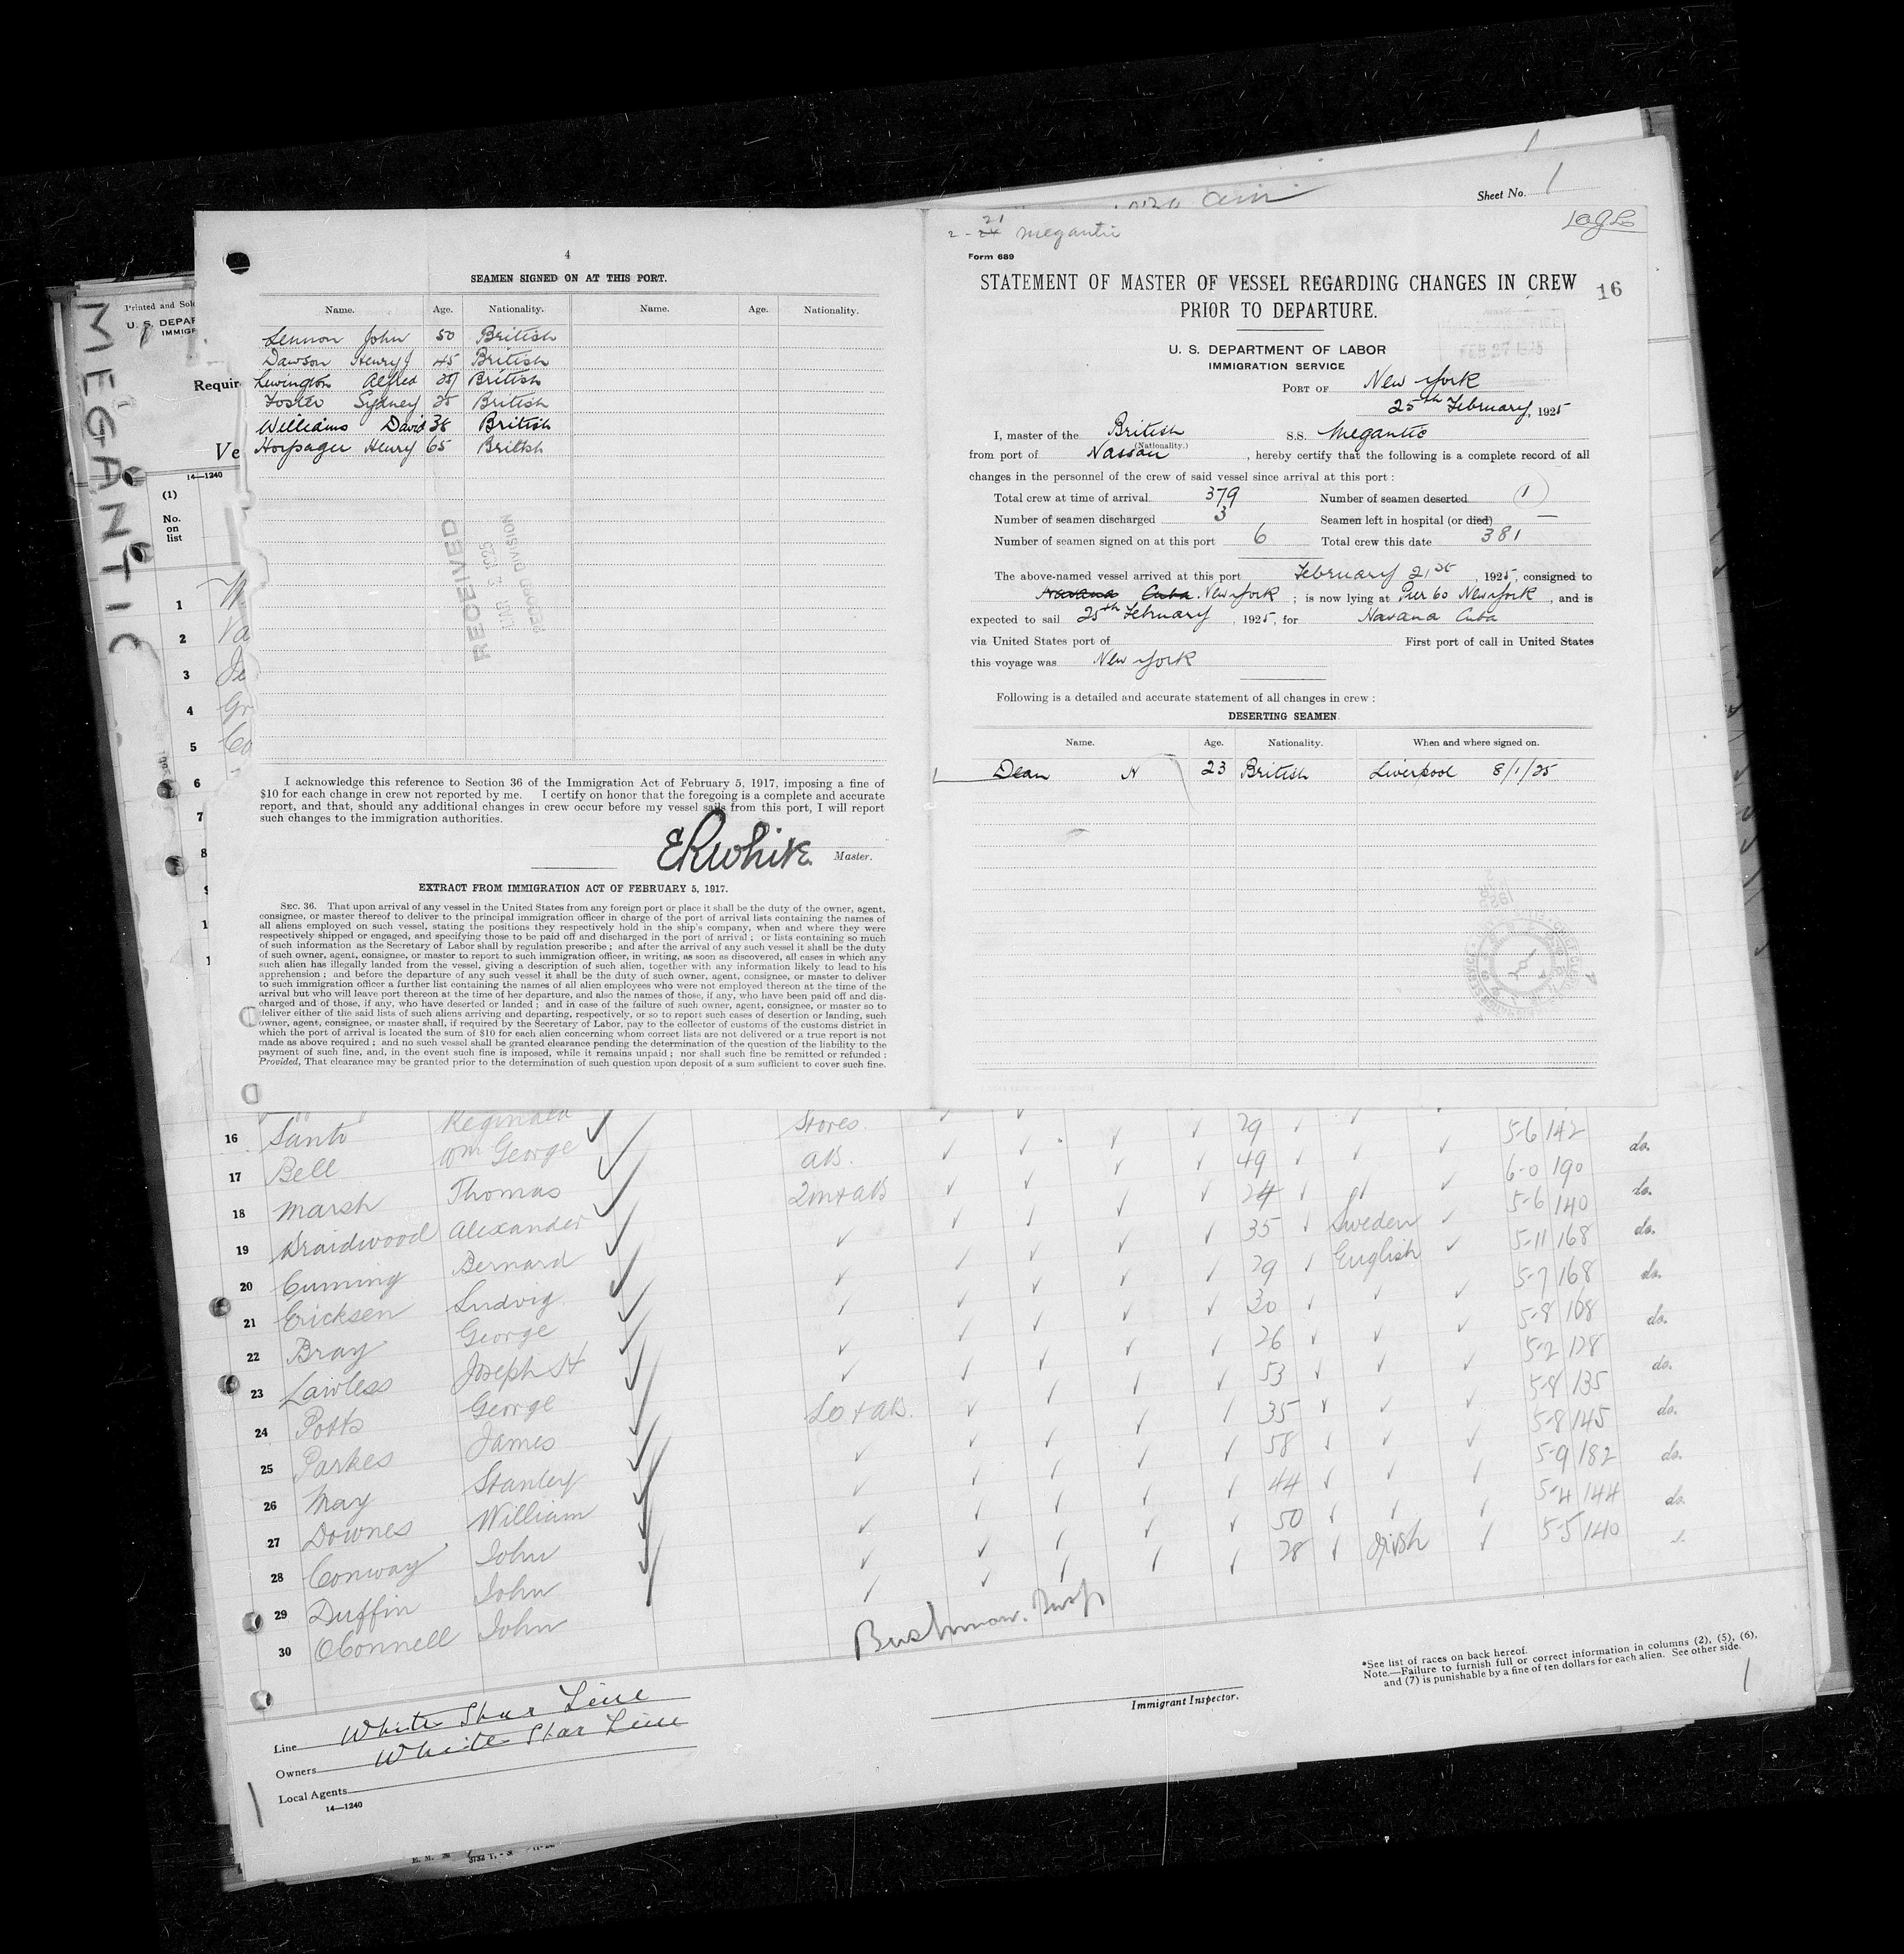 Sheet No. 1
MEGANTIC
Printed and Sol
U. S. DEPAR
IMMIGR
Requir
Ve
14—1240
(1)
No.
on
list
1
2
3
4
5
6
7
8
4
SEAMEN SIGNED ON AT THIS PORT.
Name. Age. Nationality. Name. Age. Nationality.
Lennon John 50 British
Dawson Henry J 45 British
Lewington Alfred British
Foster Sydney 25 British
Williams David 38 British
Henry 65 British
RECEIVED
MAR 2 1925
RECORD DIVISION
I acknowledge this reference to Section 36 of the Immigration Act of February 5, 1917, imposing a fine of
$10 for each change in crew not reported by me. I certify on honor that the foregoing is a complete and accurate
report, and that, should any additional changes in crew occur before my vessel sails from this port, I will report
such changes to the immigration authorities.
ERWhite Master.
EXTRACT FROM IMMIGRATION ACT OF FEBRUARY 5, 1917.
SEC. 36. That upon arrival of any vessel in the United States from any foreign port or place it shall be the duty of the owner, agent,
consignee, or master thereof to deliver to the principal immigration officer in charge of the port of arrival lists containing the names of
all aliens employed on such vessel, stating the positions they respectively hold in the ship's company, when and where they were
respectively shipped or engaged, and specifying those to be paid off and discharged in the port of arrival; or lists containing so much
of such information as the Secretary of Labor shall by regulation prescribe; and after the arrival of any such vessel it shall be the duty
of such owner, agent, consignee, or master to report to such immigration officer, in writing, as soon as discovered, all cases in which any
such alien has illegally landed from the vessel, giving a description of such alien, together with any information likely to lead to his
apprehension; and before the departure of any such vessel it shall be the duty of such owner, agent, consignee, or master to deliver
to such immigration officer a further list containing the names of all alien employees who were not employed thereon at the time of the
arrival but who will leave port thereon at the time of her departure, and also the names of those, if any, who have been paid off and dis-
charged and of those, if any, who have deserted or landed; and in case of the failure of such owner, agent, consignee, or master so to
deliver either of the said lists of such aliens arriving and departing, respectively, or so to report such cases of desertion or landing, such
owner, agent, consignee, or master shall, if required by the Secretary of Labor, pay to the collector of customs of the customs district in
which the port of arrival is located the sum of $10 for each alien concerning whom correct lists are not delivered or a true report is not
made as above required; and no such vessel shall be granted clearance pending the determination of the question of the liability to the
payment of such fine, and, in the event such fine is imposed, while it remains unpaid; nor shall such fine be remitted or refunded:
Provided, That clearance may be granted prior to the determination of such question upon deposit of a sum sufficient to cover such fine.
2 - 21 Megantic
Form 689
STATEMENT OF MASTER OF VESSEL REGARDING CHANGES IN CREW
PRIOR TO DEPARTURE.
16
U. S. DEPARTMENT OF LABOR
IMMIGRATION SERVICE
FEB 27 1925
PORT OF New York
25th February, 1925
I, master of the British S.S. Megantic
(Nationality.)
from port of Nassau, hereby certify that the following is a complete record of all
changes in the personnel of the crew of said vessel since arrival at this port:
Total crew at time of arrival 379 Number of seamen deserted 1
Number of seamen discharged 3 Seamen left in hospital (or died) —
Number of seamen signed on at this port 6 Total crew this date 381
The above-named vessel arrived at this port February 21st, 1925, consigned to
Havana Cuba New York; is now lying at Pier 60 New York, and is
expected to sail 25th February, 1925, for Havana Cuba
via United States port of First port of call in United States
this voyage was New York
Following is a detailed and accurate statement of all changes in crew:
DESERTING SEAMEN
Name. Age. Nationality. When and where signed on.
Dean N 23 British Liverpool 8/1/25
16 Santo Reginald Stores 29 5-6 142
17 Bell Wm George AB. 49 6-0 190 do.
18 Marsh Thomas 24 5-6 140 do.
19 Braidwood Alexander 35 Sweden 5-11 168 do.
20 Cuming Bernard 29 English 5-7 168 do.
21 Ericksen Ludvig 30 5-8 168 do.
22 Bray George 26 5-2 128
23 Lawless Joseph H 53 5-8 135 do.
24 Potts George 35 5-8 145 do.
25 Parkes James 58 5-9 182 do.
26 May Stanley 44 5-4 144 do.
27 Downes William 50 5-5 140
28 Conway John 28 Irish
29 Duffin John
30 OConnell John
*See list of races on back hereof.
Note.—Failure to furnish full or correct information in columns (2), (5), (6),
and (7) is punishable by a fine of ten dollars for each alien. See other side.
Immigrant Inspector.
Line White Star Line
Owners White Star Line
Local Agents
14—1240